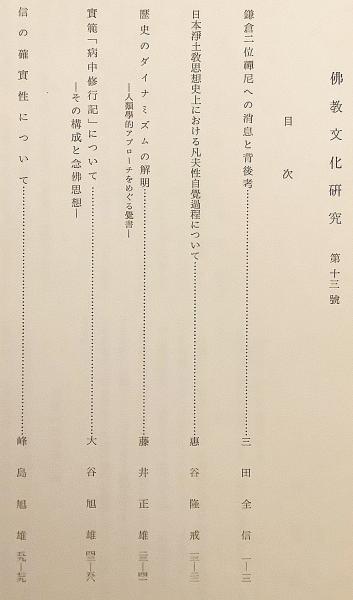 佛教文化研究 第十三號
目次
鎌倉二位禪尼への消息と背後考……三田全信
日本淨土敎思想史上における凡夫性自覺過程について……惠谷隆戒
歷史のダイナミズムの解明……藤井正雄
―人類學的アプローチをめぐる覺書―
實範「病中修行記」について……大谷旭雄
―その構成と念佛思想―
信の確實性について……峰島旭雄